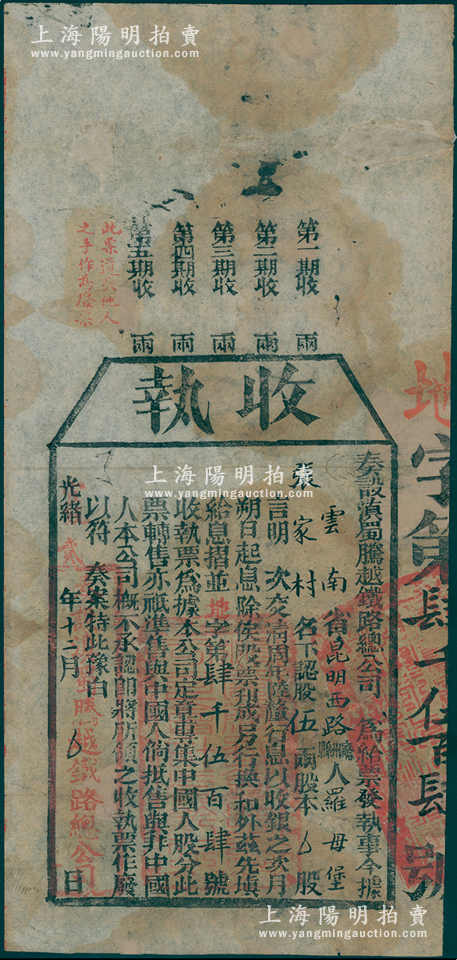 上海陽明拍賣
www.yangmingauction.com
第一期收 兩
第二期收 兩
第三期收 兩
第四期收 兩
第五期收 兩
此票遺失他人
之手作為廢票
收執
奏設滇蜀騰越鐵路總公司 為給票發執事今據
雲南省昆明西路 人羅母堡
張家村名下認股伍兩股本 股
言明 次交清周年陸釐行息以收銀之次月
朔日起息除俟股票刊成另行換和外茲先填
給息摺並地字第肆千伍百肆號
收執票為據本公司定章專集中國人股分此
票轉售亦祇準售與中國人倘抵售與非中國
人本公司概不承認即將所領之收執票作廢
以符 奏案特此豫白
光緒 年十二月 日
騰越鐵路總公司
地字第肆千伍百肆號
上海陽明拍賣
www.yangmingauction.com
上海陽明拍賣
www.yangmingauction.com